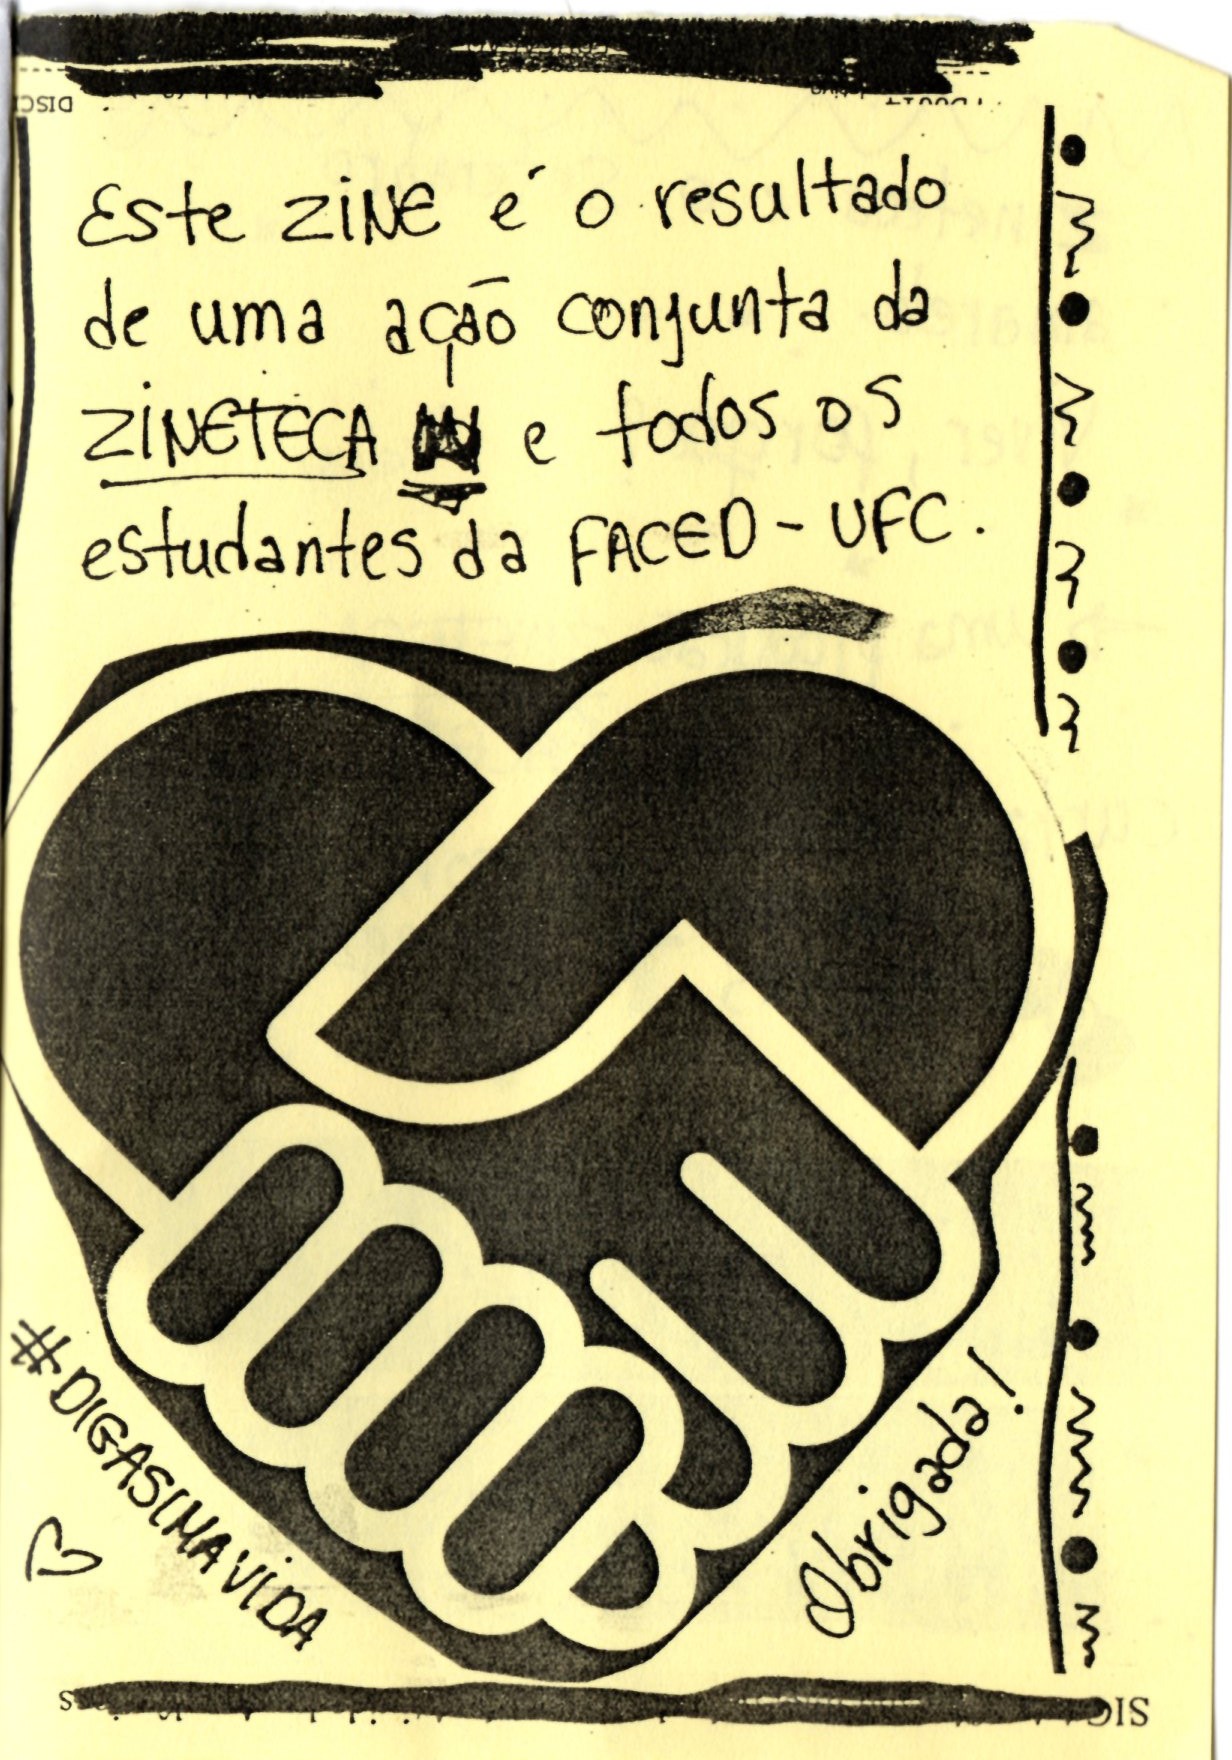 Este ZiNE é o resultado
de uma ação conjunta da
ZINETECA e todos os
estudantes da FACED - UFC.
#DIGASIMAVIDA
Obrigada!